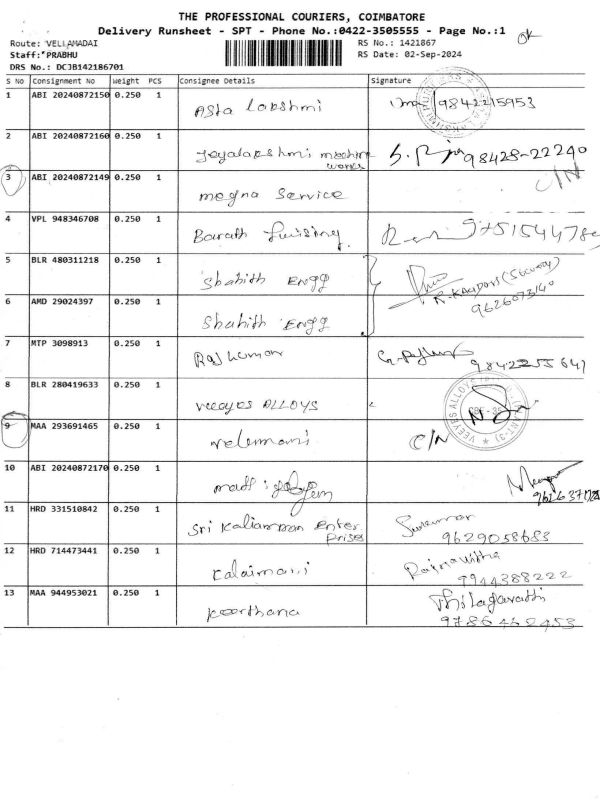 THE PROFESSIONAL COURIERS, COIMBATORE
Delivery Runsheet - SPT - Phone No.:0422-3505555 - Page No.:1
OK
Route: VELLAMADAI RS No.: 1421867
Staff: PRABHU RS Date: 02-Sep-2024
DRS No.: DCJB142186701
S No Consignment No Weight PCS Consignee Details Signature
1 ABI 20240872150 0.250 1 Asta Lakshmi 9842215953
2 ABI 20240872160 0.250 1 Jeyalakshmi machine works 98428-22240
3 ABI 20240872149 0.250 1 megna Service C/N
4 VPL 948346708 0.250 1 Barath
5 BLR 480311218 0.250 1 Shahith Engg
6 AMD 29024397 0.250 1 Shahith Engg
7 MTP 3098913 0.250 1 Rajkumar
8 BLR 280419633 0.250 1 veeyes ALLOYS
9 MAA 293691465 0.250 1 velumani C/N
10 ABI 20240872170 0.250 1
11 HRD 331510842 0.250 1 Sri Kaliamman Enterprises 9629058683
12 HRD 714473441 0.250 1 Kalaimani 9944388222
13 MAA 944953021 0.250 1 Keerthana Thilagavathi
9786462453